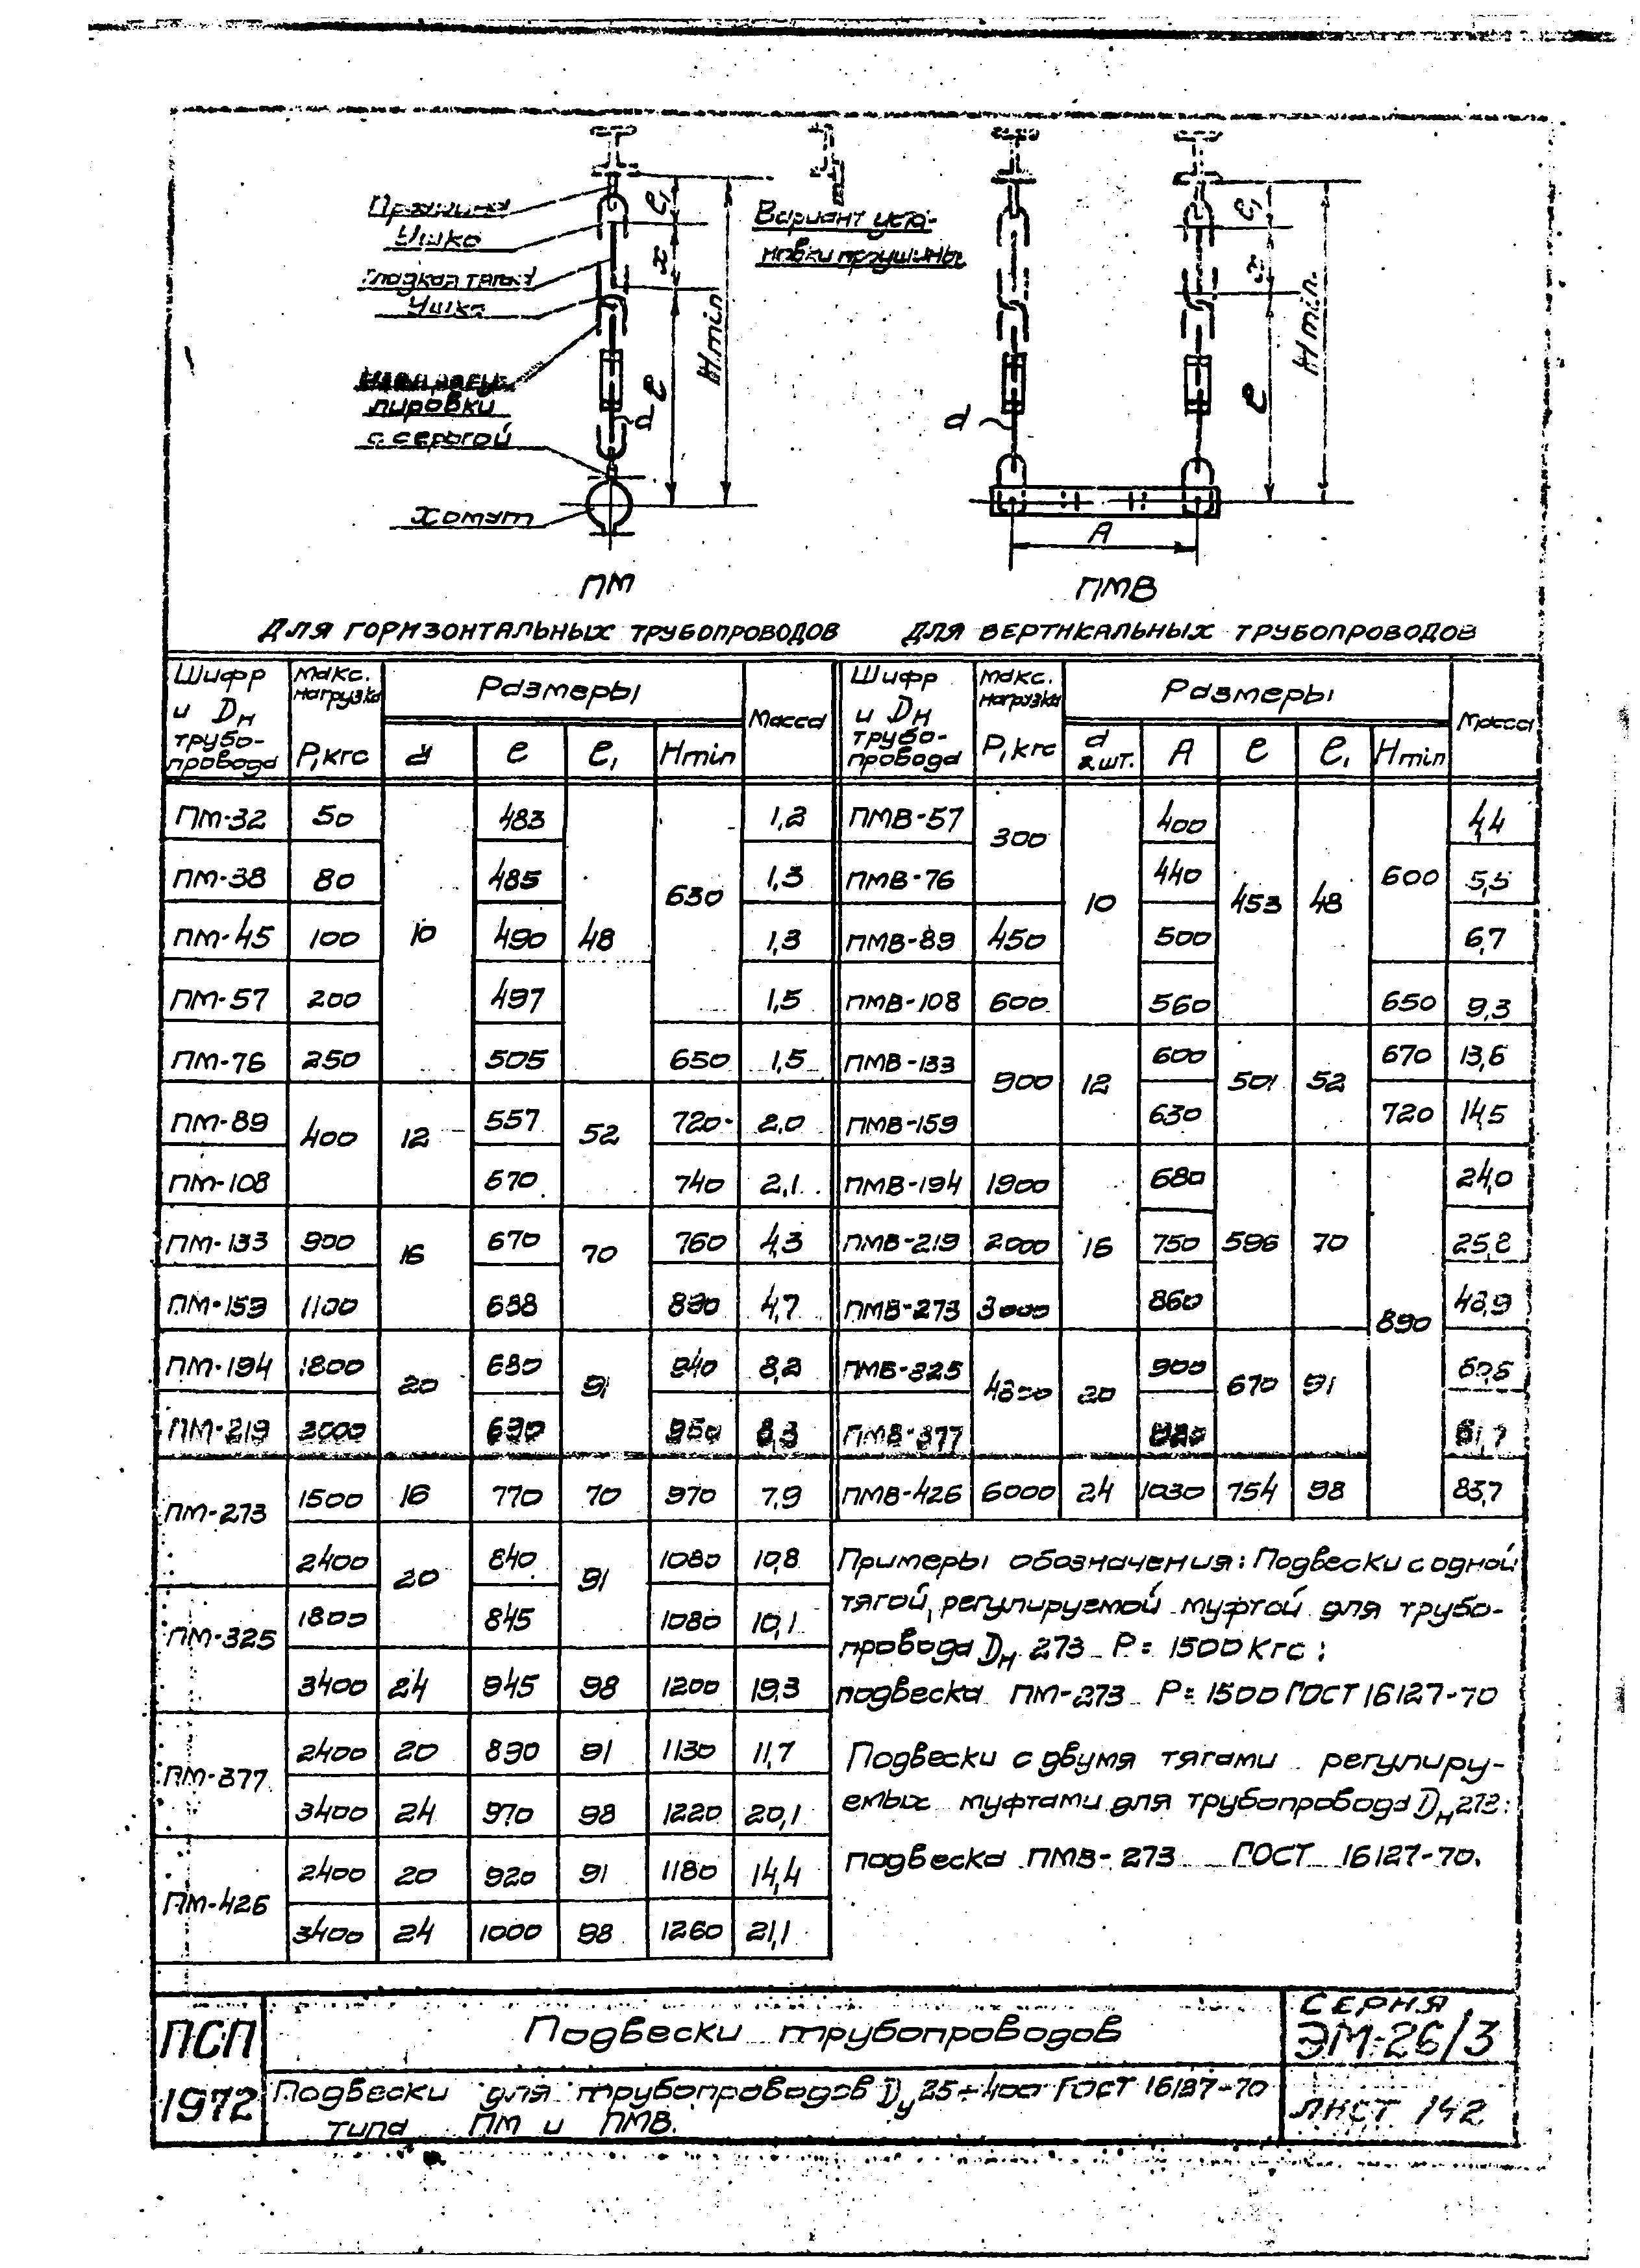 Проушина
Ушко
Гладкая тяга
Ушко
лировки
с серьгой
Хомут
ℓ₁
x
ℓ
Hmin
d
Вариант уста-
новки проушины
ℓ₁
x
ℓ
Hmin.
d
A
ПМ
ПМВ
ДЛЯ ГОРИЗОНТАЛЬНЫХ ТРУБОПРОВОДОВ
ДЛЯ ВЕРТИКАЛЬНЫХ ТРУБОПРОВОДОВ
Шифр и Dн трубо-провода | Макс. нагрузка P, кгс | Размеры | Масса
d | ℓ | ℓ₁ | Hmin
ПМ-32 | 50 | 10 | 483 | 48 | 630 | 1,2
ПМ-38 | 80 | 485 | 1,3
ПМ-45 | 100 | 490 | 1,3
ПМ-57 | 200 | 497 | 1,5
ПМ-76 | 250 | 505 | 650 | 1,5
ПМ-89 | 400 | 12 | 557 | 52 | 720 | 2,0
ПМ-108 | 570 | 740 | 2,1
ПМ-133 | 900 | 16 | 670 | 70 | 760 | 4,3
ПМ-159 | 1100 | 688 | 890 | 4,7
ПМ-194 | 1800 | 20 | 680 | 91 | 940 | 8,2
ПМ-219 | 2000 | 690 | 950 | 8,3
ПМ-273 | 1500 | 16 | 770 | 70 | 970 | 7,9
2400 | 20 | 840 | 91 | 1080 | 10,8
ПМ-325 | 1800 | 845 | 1080 | 10,1
3400 | 24 | 945 | 98 | 1200 | 19,3
ПМ-377 | 2400 | 20 | 890 | 91 | 1130 | 11,7
3400 | 24 | 970 | 98 | 1220 | 20,1
ПМ-426 | 2400 | 20 | 920 | 91 | 1180 | 14,4
3400 | 24 | 1000 | 98 | 1260 | 21,1
Шифр и Dн трубо-провода | Макс. нагрузка P, кгс | Размеры | Масса
d 2 шт. | A | ℓ | ℓ₁ | Hmin
ПМВ-57 | 300 | 10 | 400 | 453 | 48 | 600 | 4,4
ПМВ-76 | 440 | 5,5
ПМВ-89 | 450 | 500 | 6,7
ПМВ-108 | 600 | 560 | 650 | 9,3
ПМВ-133 | 900 | 12 | 600 | 501 | 52 | 670 | 13,6
ПМВ-159 | 630 | 720 | 14,5
ПМВ-194 | 1900 | 16 | 680 | 596 | 70 | 890 | 24,0
ПМВ-219 | 2000 | 750 | 25,8
ПМВ-273 | 3000 | 860 | 48,9
ПМВ-325 | 4800 | 20 | 900 | 670 | 91
ПМВ-377
ПМВ-426 | 6000 | 24 | 1030 | 754 | 98 | 83,7
Примеры обозначения: Подвески с одной
тягой, регулируемой муфтой для трубо-
провода Dн 273 P = 1500 кгс:
подвеска ПМ-273 P = 1500 ГОСТ 16127-70
Подвески с двумя тягами регулиру-
емых муфтами для трубопровода Dн 273:
подвеска ПМВ-273 ГОСТ 16127-70.
ПСП
1972
Подвески трубопроводов
Подвески для трубопроводов Dу 25÷400 ГОСТ 16127-70
типа ПМ и ПМВ.
СЕРИЯ
ЭМ-26/3
ЛИСТ 142